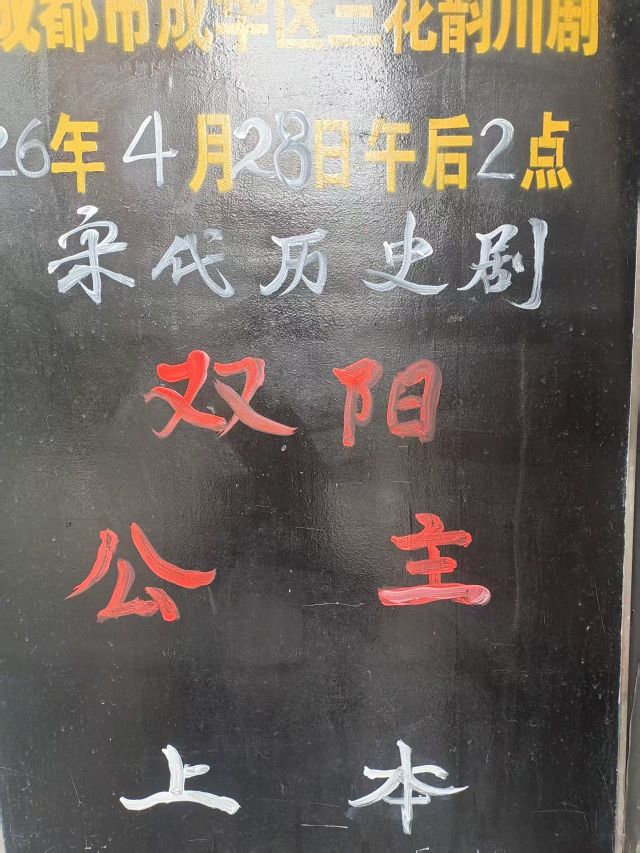 成都市成华区三花韵川剧
26年4月28日午后2点
宋代历史剧
双阳
公主
上本